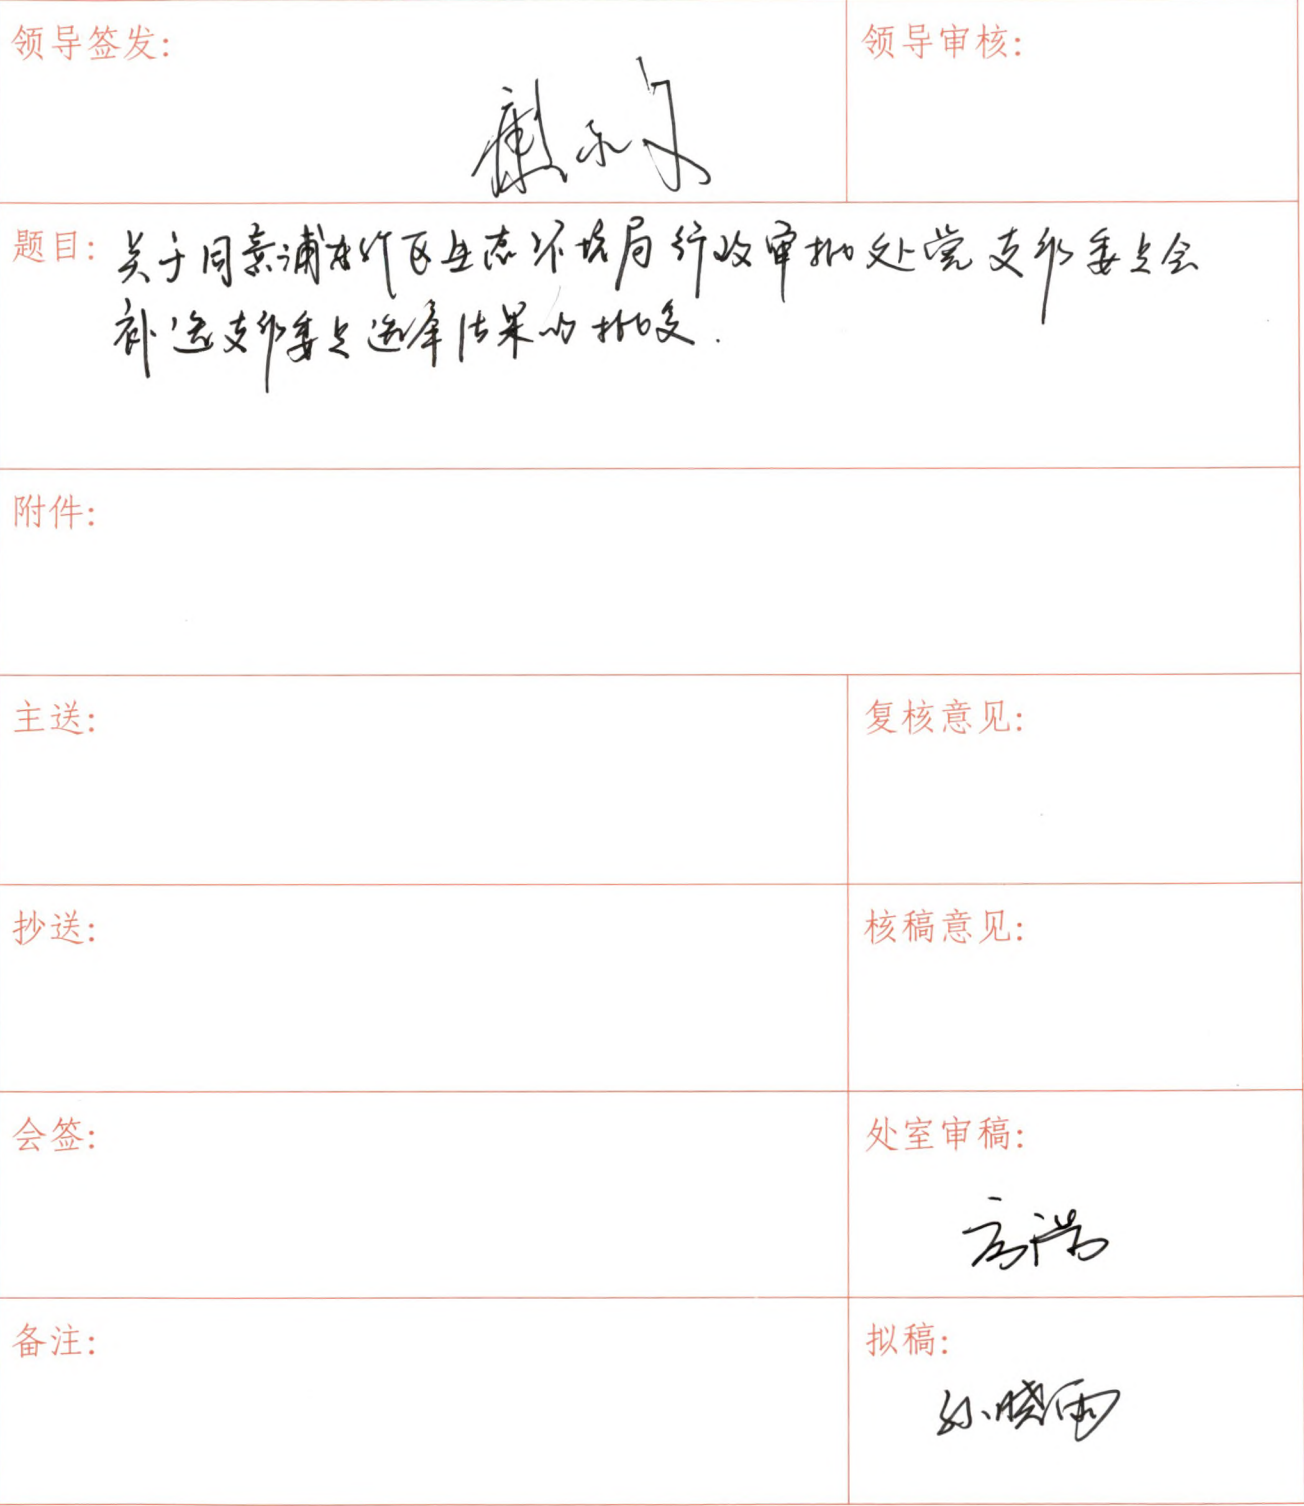 领导签发:
领导审核:
题目: 关于同意浦东新区生态环境局行政审批处党支部委员会
补选支部委员选举结果的批复.
附件:
主送:
复核意见:
抄送:
核稿意见:
会签:
处室审稿:
备注:
拟稿:
孙晓雨